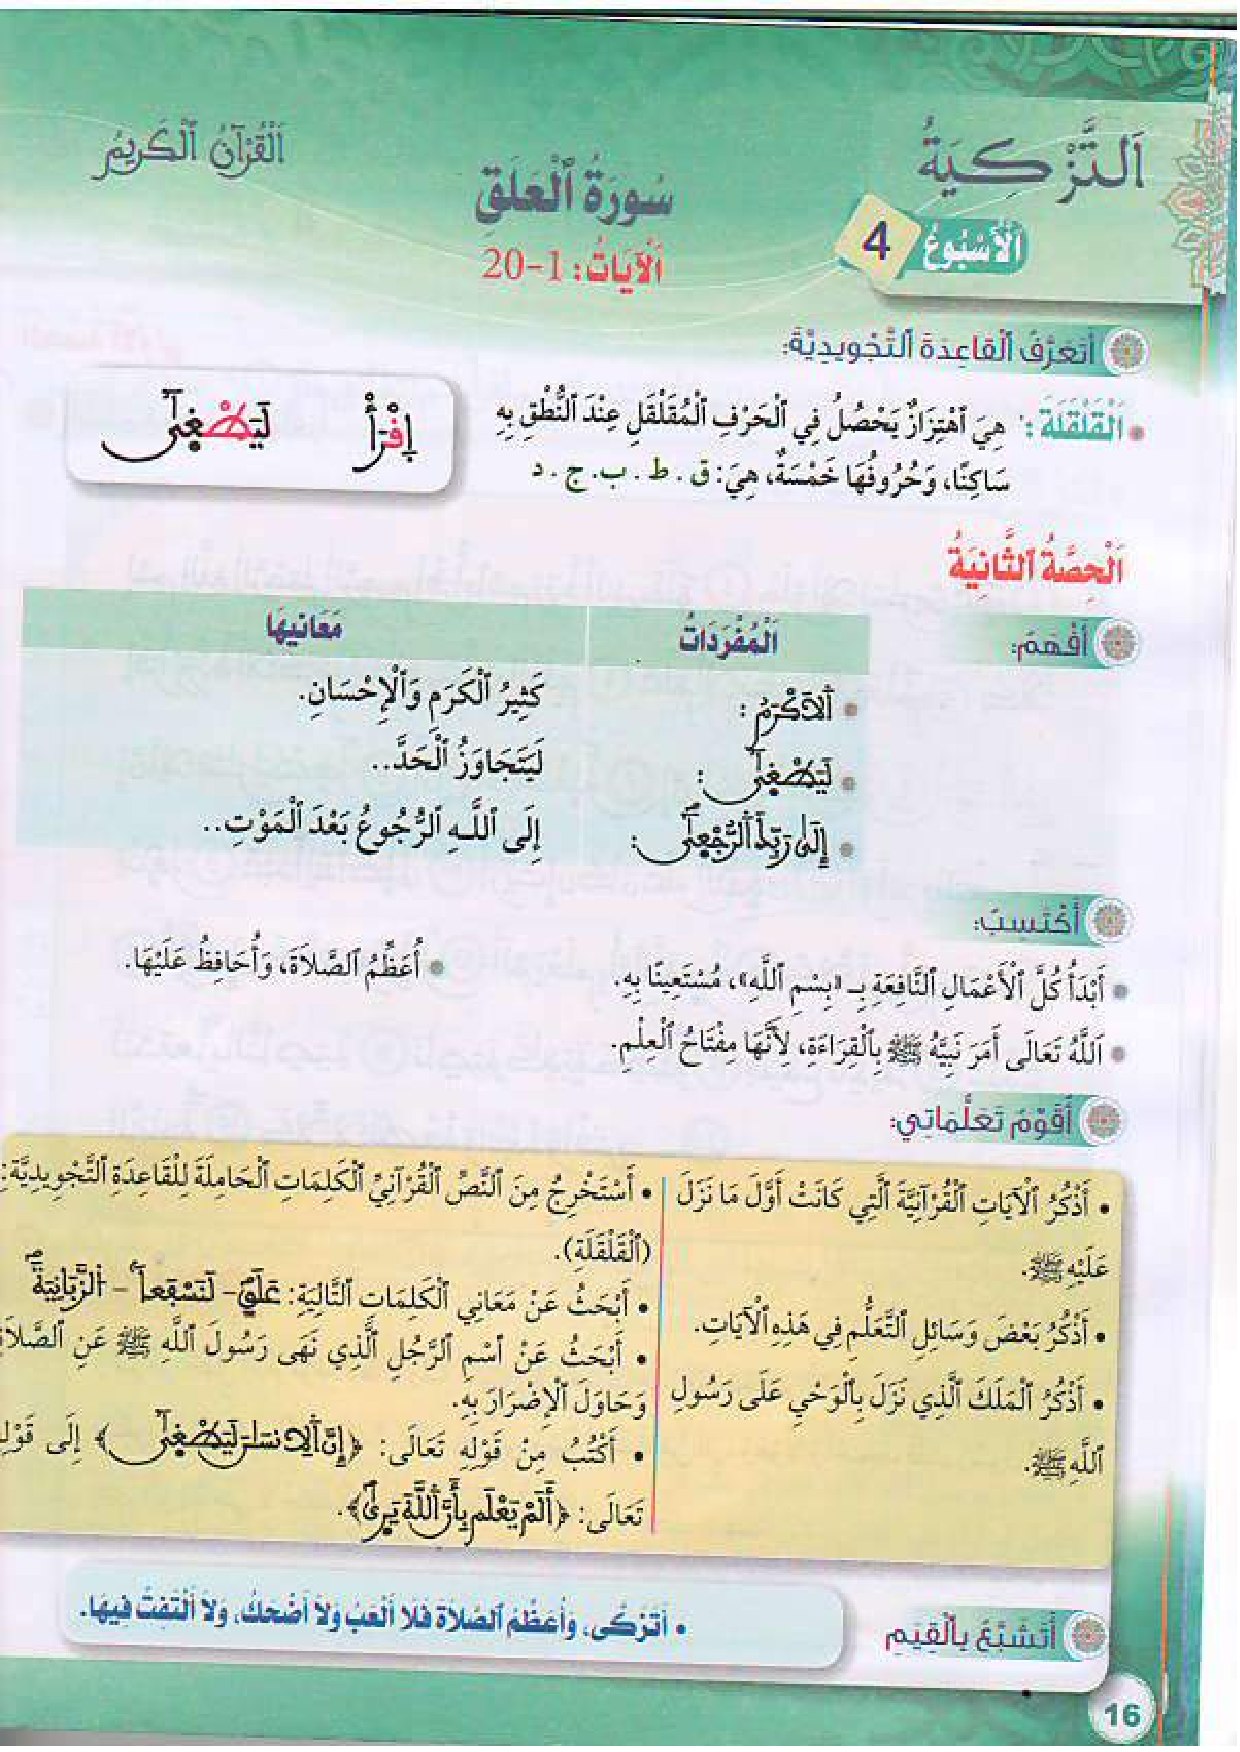 اَلتَّزْكِيَةُ
اَلْقُرْآنُ ٱلْكَرِيمُ
اَلْأُسْبُوعُ 4
سُورَةُ ٱلْعَلَقِ
اَلْآيَاتُ: 1-20
أَتَعَرَّفُ ٱلْقَاعِدَةَ ٱلتَّجْوِيدِيَّةَ:
• اَلْقَلْقَلَةُ: هِيَ ٱهْتِزَازٌ يَحْصُلُ فِي ٱلْحَرْفِ ٱلْمُقَلْقَلِ عِنْدَ ٱلنُّطْقِ بِهِ
سَاكِنًا، وَحُرُوفُهَا خَمْسَةٌ، هِيَ: ق . ط . ب . ج . د
إِقْرَأْ لَيَطْغَىٰ
اَلْحِصَّةُ ٱلثَّانِيَةُ
أَفْهَمُ:
اَلْمُفْرَدَاتُ مَعَانِيهَا
• اَلَاكْرَمُ: كَثِيرُ ٱلْكَرَمِ وَٱلْإِحْسَانِ.
• لَيَطْغَىٰ: لَيَتَجَاوَزُ ٱلْحَدَّ..
• إِلَىٰ رَبِّكَ ٱلرُّجْعَىٰ: إِلَى ٱللَّـهِ ٱلرُّجُوعُ بَعْدَ ٱلْمَوْتِ..
أَكْتَسِبُ:
• أَبْدَأُ كُلَّ ٱلْأَعْمَالِ ٱلنَّافِعَةِ بِـ «بِسْمِ ٱللَّهِ»، مُسْتَعِينًا بِهِ.
• اَللَّهُ تَعَالَى أَمَرَ نَبِيَّهُ ﷺ بِالْقِرَاءَةِ، لِأَنَّهَا مِفْتَاحُ ٱلْعِلْمِ.
• أُعَظِّمُ ٱلصَّلَاةَ، وَأُحَافِظُ عَلَيْهَا.
أُقَوِّمُ تَعَلُّمَاتِي:
• أَذْكُرُ ٱلْآيَاتِ ٱلْقُرْآنِيَّةَ ٱلَّتِي كَانَتْ أَوَّلَ مَا نَزَلَ
عَلَيْهِ ﷺ.
• أَذْكُرُ بَعْضَ وَسَائِلِ ٱلتَّعَلُّمِ فِي هَذِهِ ٱلْآيَاتِ.
• أَذْكُرُ ٱلْمَلَكَ ٱلَّذِي نَزَلَ بِٱلْوَحْيِ عَلَى رَسُولِ
ٱللَّهِ ﷺ.
• أَسْتَخْرِجُ مِنَ ٱلنَّصِّ ٱلْقُرْآنِيِّ ٱلْكَلِمَاتِ ٱلْحَامِلَةَ لِلْقَاعِدَةِ ٱلتَّجْوِيدِيَّةِ:
(ٱلْقَلْقَلَةِ).
• أَبْحَثُ عَنْ مَعَانِي ٱلْكَلِمَاتِ ٱلتَّالِيَةِ: عَلَقٍ - لَنَسْفَعاً - اَلزَّبَانِيَةَ
• أَبْحَثُ عَنْ ٱسْمِ ٱلرَّجُلِ ٱلَّذِي نَهَى رَسُولَ ٱللَّهِ ﷺ عَنِ ٱلصَّلَاةِ
وَحَاوَلَ ٱلْإِضْرَارَ بِهِ.
• أَكْتُبُ مِنْ قَوْلِهِ تَعَالَى: ﴿إِنَّ ٱلِانسَٰنَ لَيَطْغَىٰ﴾ إِلَى قَوْلِهِ
تَعَالَى: ﴿أَلَمْ يَعْلَم بِأَنَّ ٱللَّهَ يَرَىٰ﴾.
أَتَشَبَّعُ بِٱلْقِيَمِ
• أَتَزَكَّى، وَأُعَظِّمُ ٱلصَّلَاةَ فَلَا أَلْعَبُ وَلَا أَضْحَكُ، وَلَا أَلْتَفِتُ فِيهَا.
16